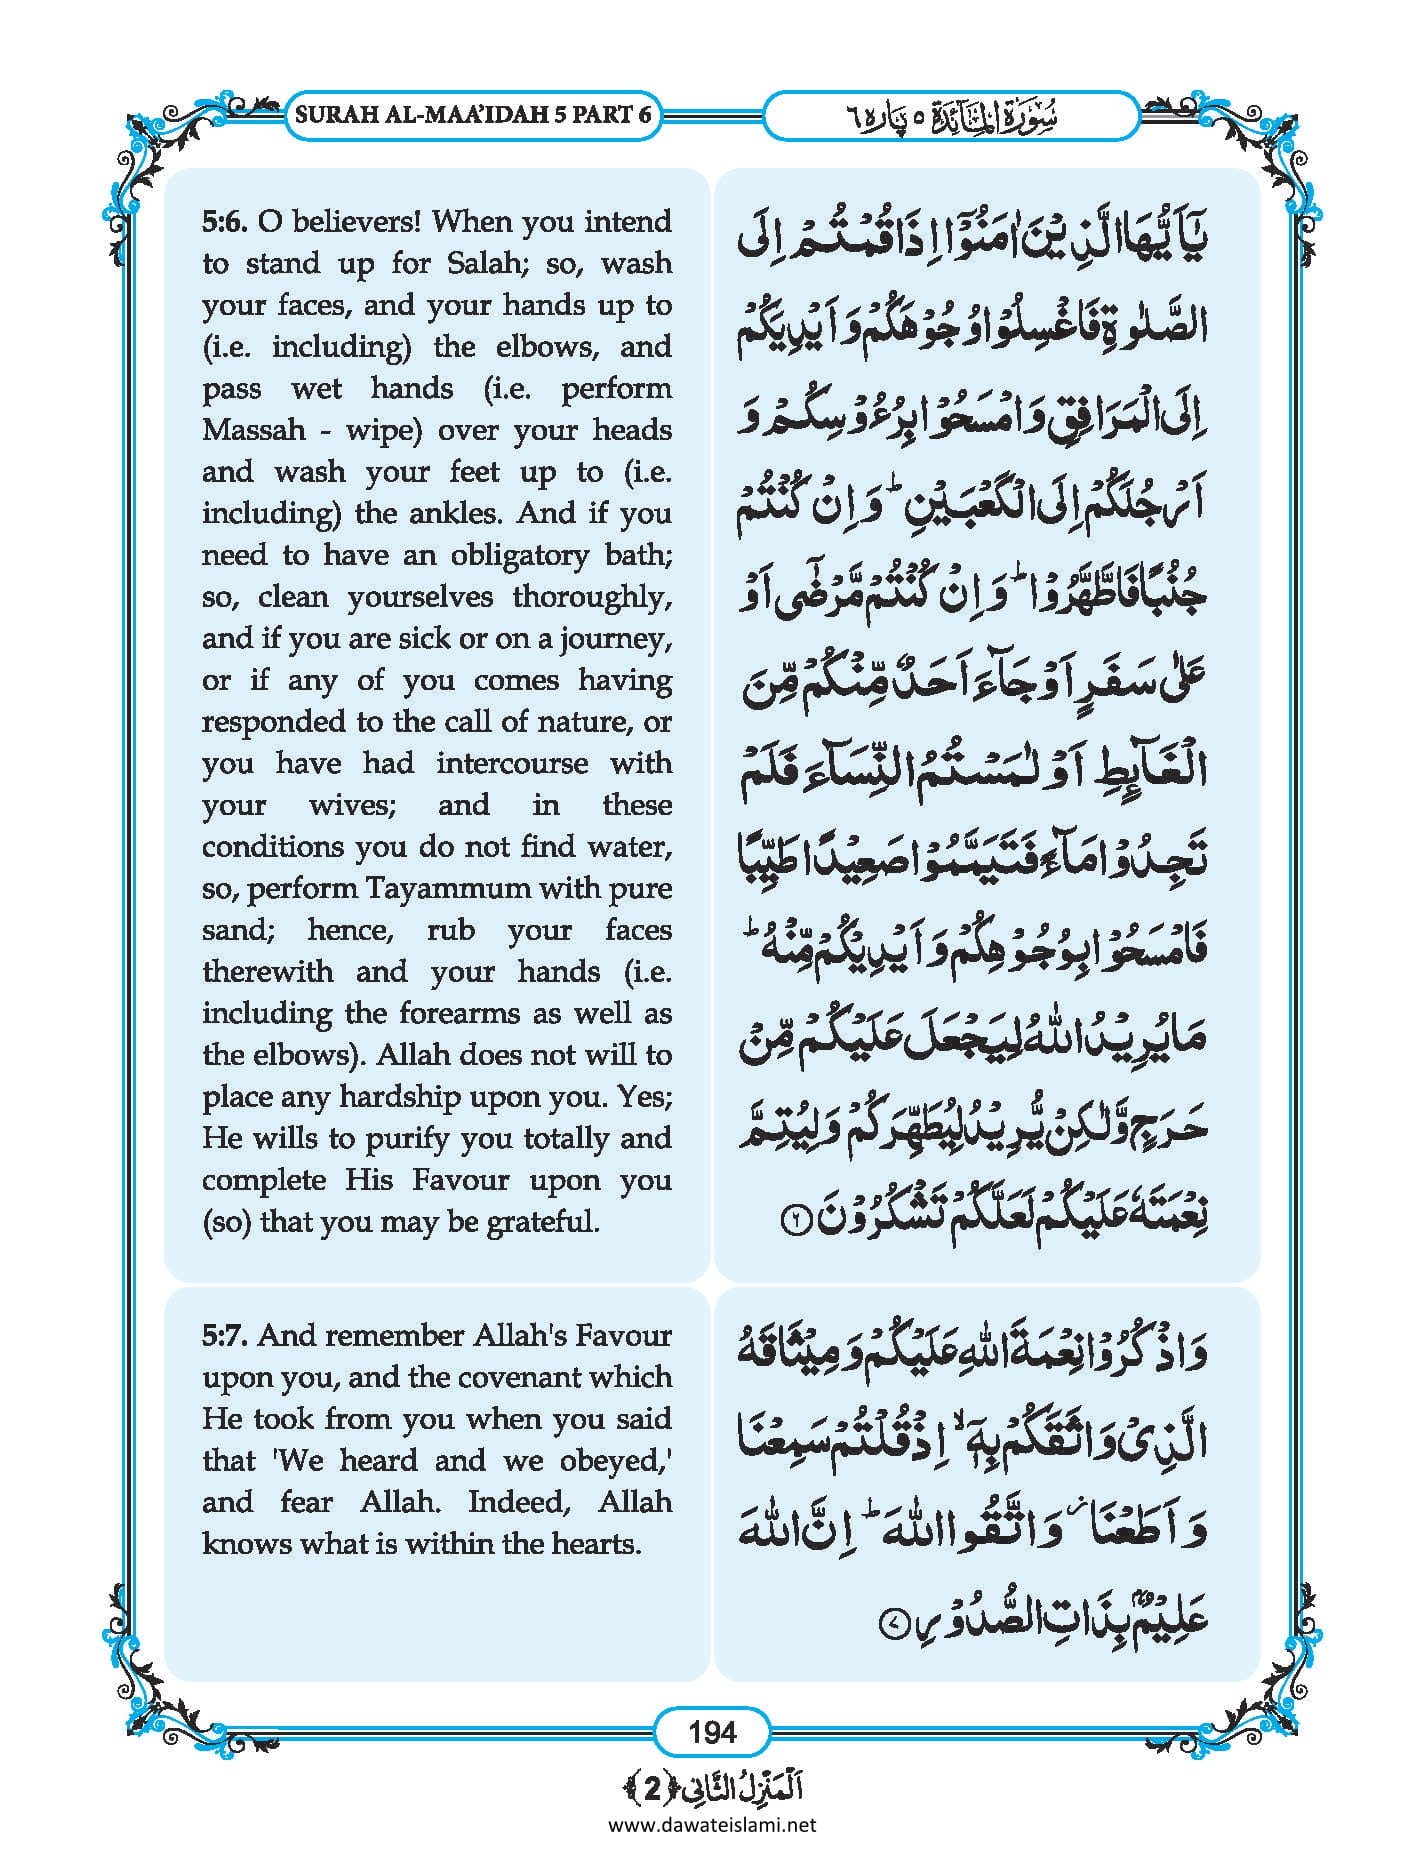 SURAH AL-MAA’IDAH 5 PART 6
سُوْرَۃُ الْمَآئِدَة ٥ پَاره ٦
5:6. O believers! When you intend
to stand up for Salah; so, wash
your faces, and your hands up to
(i.e. including) the elbows, and
pass wet hands (i.e. perform
Massah - wipe) over your heads
and wash your feet up to (i.e.
including) the ankles. And if you
need to have an obligatory bath;
so, clean yourselves thoroughly,
and if you are sick or on a journey,
or if any of you comes having
responded to the call of nature, or
you have had intercourse with
your wives; and in these
conditions you do not find water,
so, perform Tayammum with pure
sand; hence, rub your faces
therewith and your hands (i.e.
including the forearms as well as
the elbows). Allah does not will to
place any hardship upon you. Yes;
He wills to purify you totally and
complete His Favour upon you
(so) that you may be grateful.
یٰۤاَیُّهَا الَّذِیْنَ اٰمَنُوْۤا اِذَا قُمْتُمْ اِلَى
الصَّلٰوةِ فَاغْسِلُوْا وُجُوْهَكُمْ وَ اَیْدِیَكُمْ
اِلَى الْمَرَافِقِ وَ امْسَحُوْا بِرُءُوْسِكُمْ وَ
اَرْجُلَكُمْ اِلَى الْكَعْبَیْنِؕ وَ اِنْ كُنْتُمْ
جُنُبًا فَاطَّهَّرُوْاؕ وَ اِنْ كُنْتُمْ مَّرْضٰۤى اَوْ
عَلٰى سَفَرٍ اَوْ جَآءَ اَحَدٌ مِّنْكُمْ مِّنَ
الْغَآىٕطِ اَوْ لٰمَسْتُمُ النِّسَآءَ فَلَمْ
تَجِدُوْا مَآءً فَتَیَمَّمُوْا صَعِیْدًا طَیِّبًا
فَامْسَحُوْا بِوُجُوْهِكُمْ وَ اَیْدِیْكُمْ مِّنْهُؕ
مَا یُرِیْدُ اللّٰهُ لِیَجْعَلَ عَلَیْكُمْ مِّنْ
حَرَجٍ وَّ لٰكِنْ یُّرِیْدُ لِیُطَهِّرَكُمْ وَ لِیُتِمَّ
نِعْمَتَهٗ عَلَیْكُمْ لَعَلَّكُمْ تَشْكُرُوْنَ ۶
5:7. And remember Allah's Favour
upon you, and the covenant which
He took from you when you said
that 'We heard and we obeyed,'
and fear Allah. Indeed, Allah
knows what is within the hearts.
وَ اذْكُرُوْا نِعْمَةَ اللّٰهِ عَلَیْكُمْ وَ مِیْثَاقَهُ
الَّذِیْ وَاثَقَكُمْ بِهٖۤۙ اِذْ قُلْتُمْ سَمِعْنَا
وَ اَطَعْنَا٘ وَ اتَّقُوا اللّٰهَؕ اِنَّ اللّٰهَ
عَلِیْمٌۢ بِذَاتِ الصُّدُوْرِ ۷
194
اَلْمَنْزِلُ الثَّانِی ﴿2﴾
www.dawateislami.net